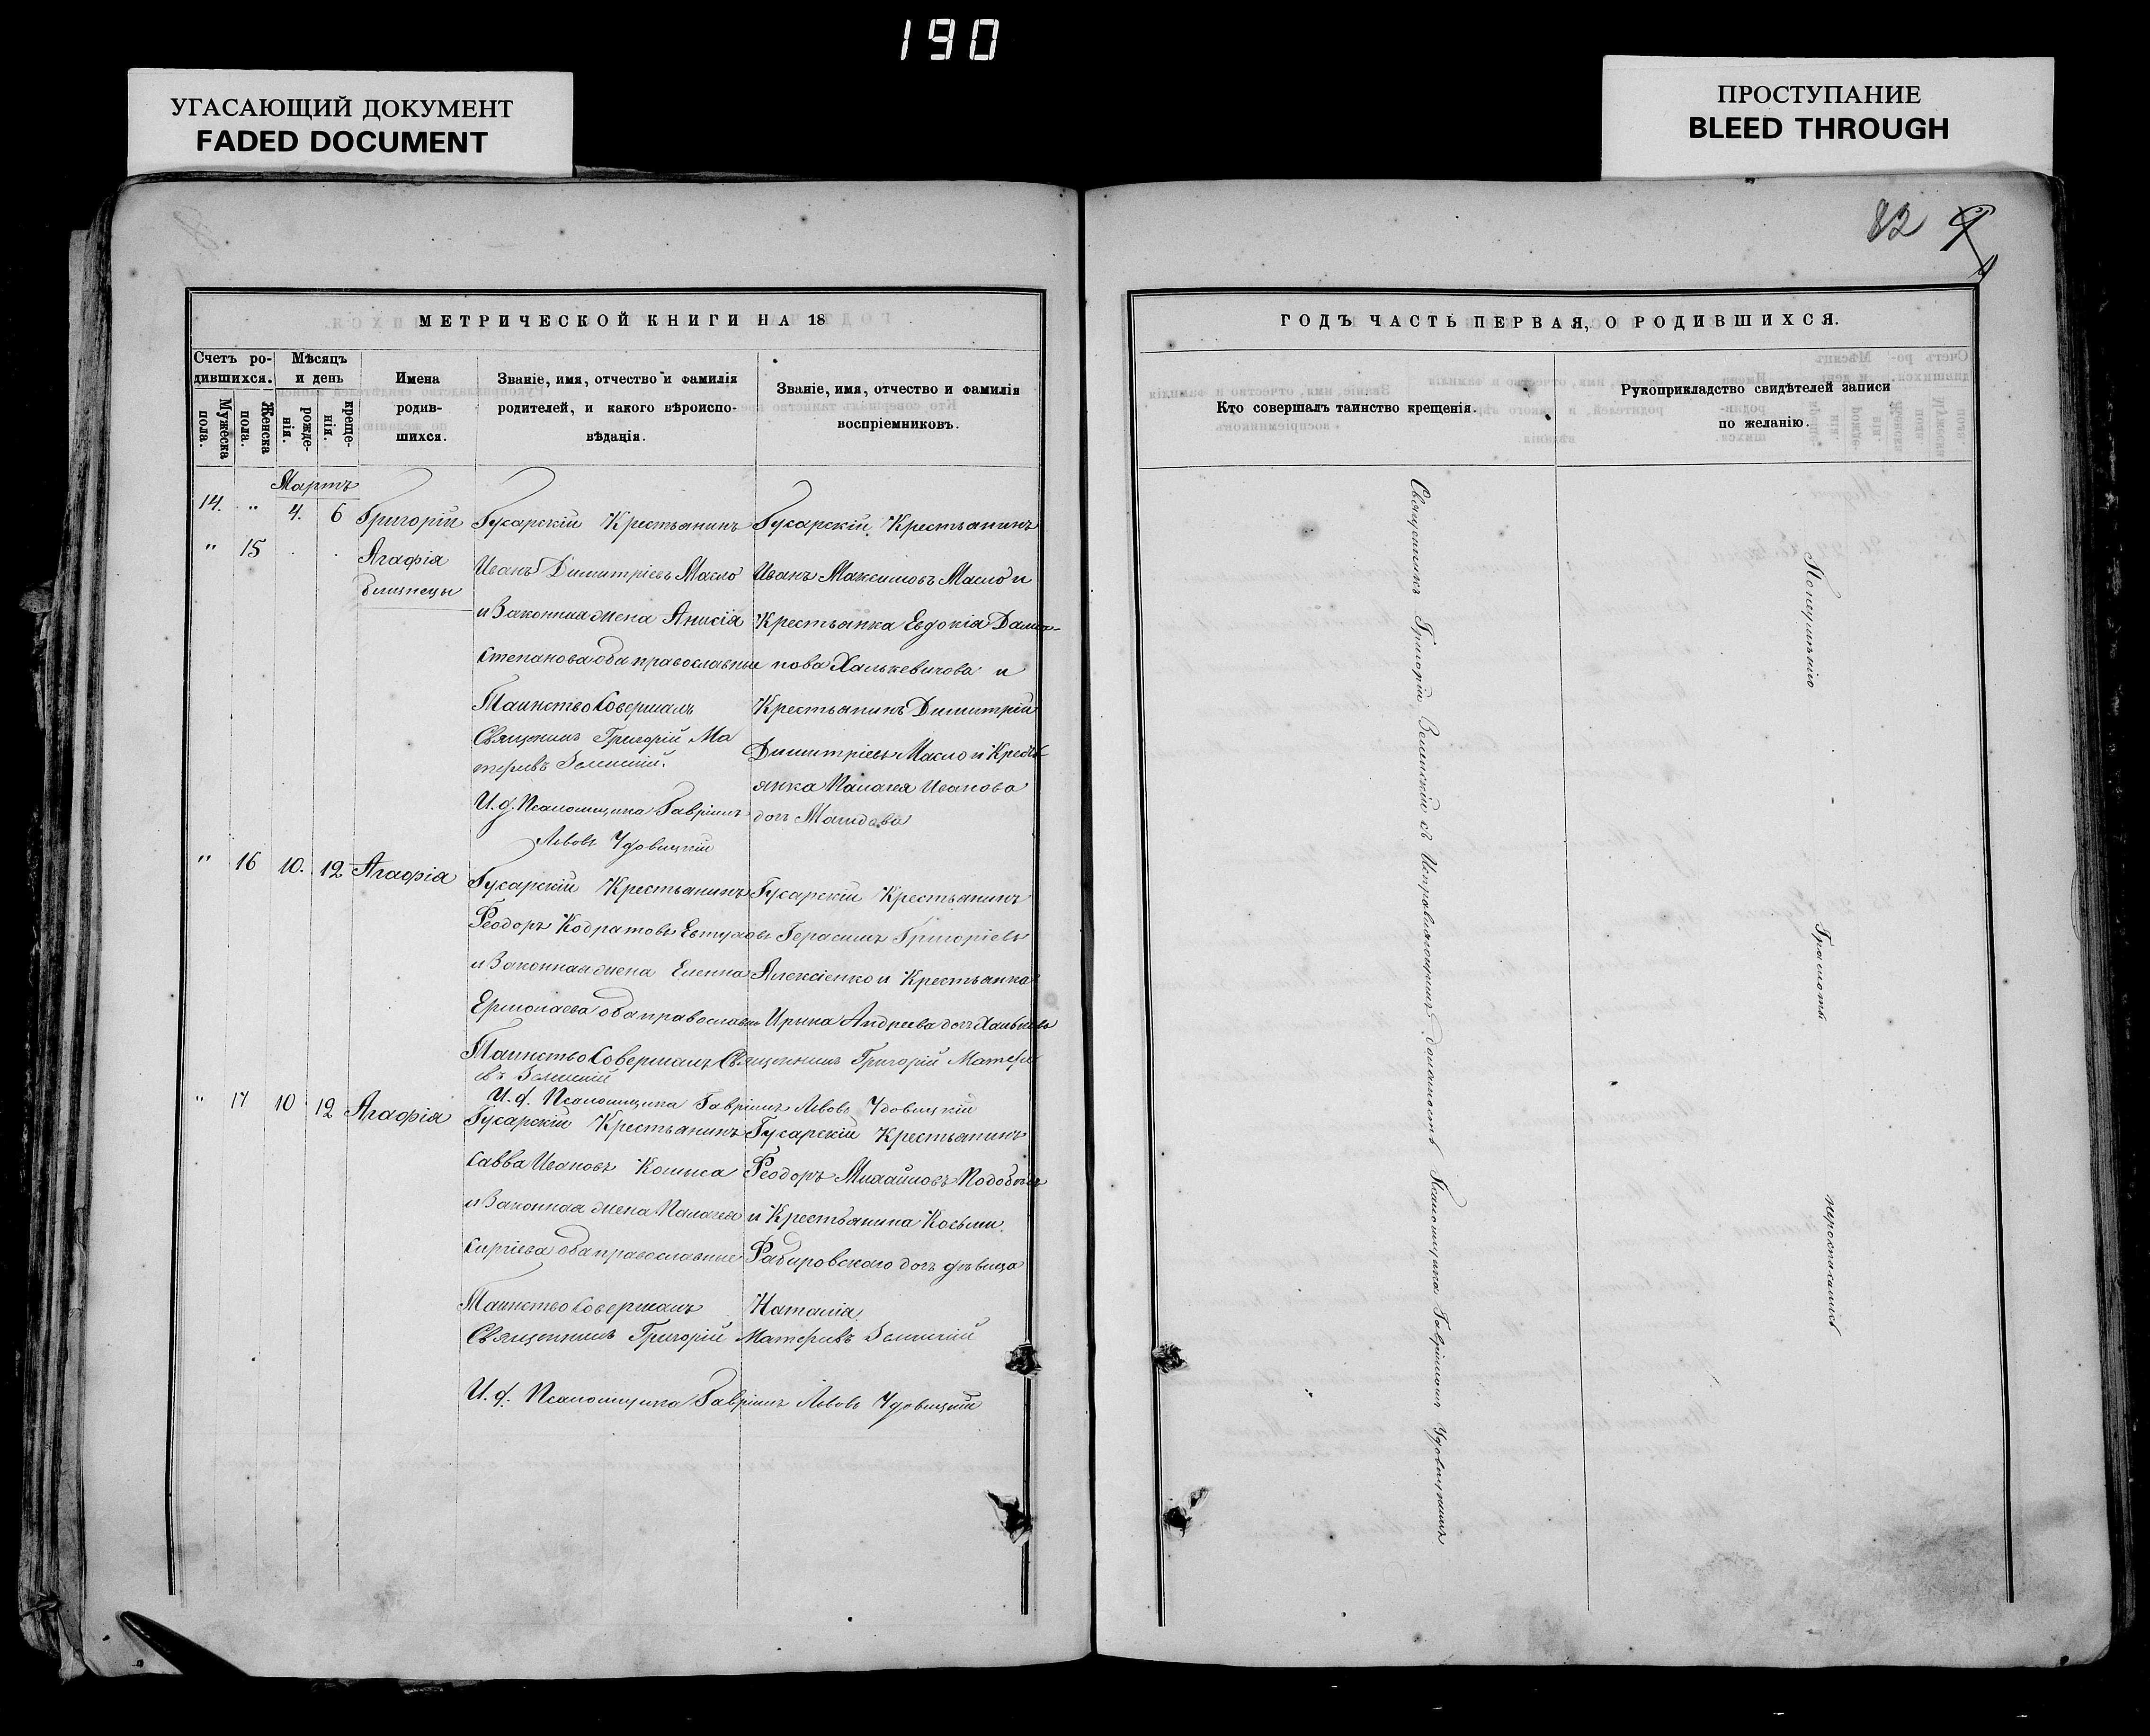 190
УГАСАЮЩИЙ ДОКУМЕНТ
FADED DOCUMENT
ПРОСТУПАНИЕ
BLEED THROUGH
82
МЕТРИЧЕСКОЙ КНИГИ НА 18
Счетъ ро-
дившихся.
Мужеска
пола.
Женска
пола.
Мѣсяцъ
и день
рожде-
нія.
креще-
нія.
Имена
родив-
шихся.
Званіе, имя, отчество и фамилія
родителей, и какого вѣроиспо-
вѣданія.
Званіе, имя, отчество и фамилія
воспріемниковъ.
Мартъ
14. " 4. 6 Григорій
" 15 . . Агафія
близнецы
Гусарскій Крестьянинъ
Иванъ Димитріевъ Масло
и Законная жена Анисія
Степанова оба православные
Таинство Совершалъ
Священникъ Григорій Ма
Зелинскій.
И. д. Псаломщика Гавріилъ
Львовъ Удовицкій
Гусарскій Крестьянинъ
Иванъ Максимовъ Масло и
Крестьянка Евдокія Дамья-
нова Халькевичова и
Крестьянинъ Димитрій
Димитріевъ Масло и Кресть
янка Палагея Иванова
дочь
" 16 10. 12 Агафія
Гусарскій Крестьянинъ
Феодоръ Кодратовъ Евтухов
и Законная жена Елена
Ермолаева оба православн
Гусарскій Крестьянинъ
Герасимъ Григоріевъ
Алексіенко и Крестьянка
Ирина Андреева дочь
Таинство Совершалъ Священникъ Григорій
Зелинскій
И. д. Псаломщика Гавріилъ Львовъ Удовицкій
" 17 10 12 Агафія
Гусарскій Крестьянинъ
Савва Ивановъ
и Законная жена Палагея
Сергіева оба православные
Таинство Совершалъ
Гусарскій Крестьянинъ
Феодоръ Михайловъ
и Крестьянина Косьмы
дочь дѣвица
Наталія.
Священникъ Григорій Зелинскій
И. д. Псаломщика Гавріилъ Львовъ Удовицкій
ГОДЪ ЧАСТЬ ПЕРВАЯ, О РОДИВШИХСЯ.
Кто совершалъ таинство крещенія.
Рукоприкладство свидѣтелей записи
по желанію.
Священникъ Григорій Зелинскій съ Исправляющимъ должность Псаломщика Гавріиломъ Удовицкимъ
По неумѣнію - Грамоты